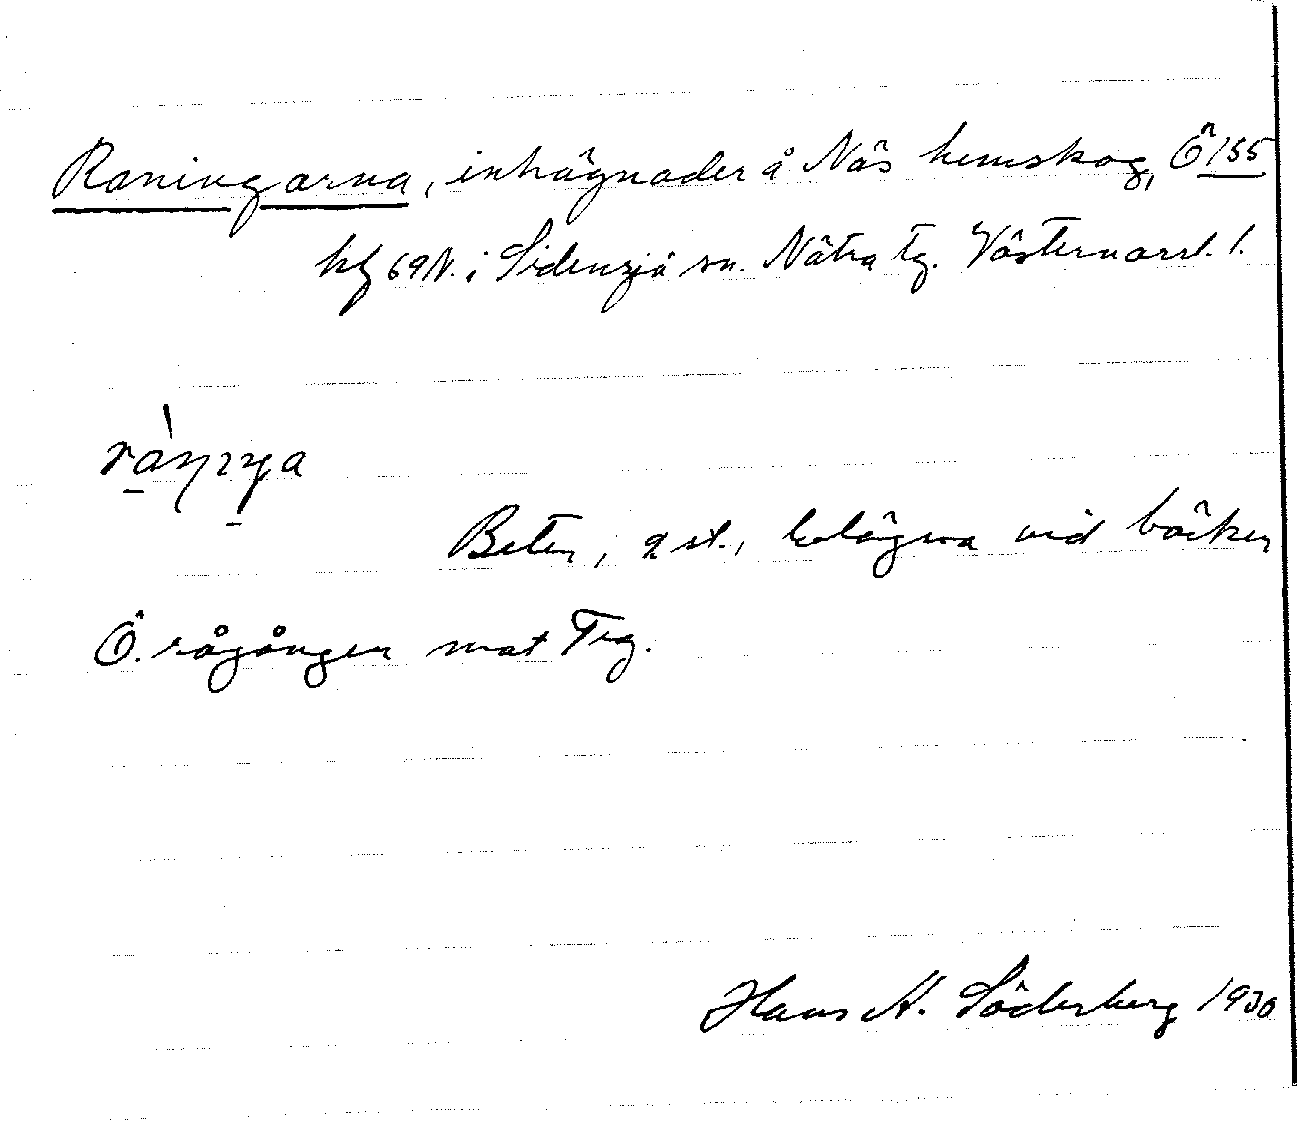 Raningarna, inhägnader å Näs hemskog, Ö 155
hfl 69 N. i Sidensjö sn. Nätra tg. Västernorrl. l.
Beten, 2 st., belägna vid bäcken
Ö. rågången mot Trg.
Hans A. Söderberg 1930